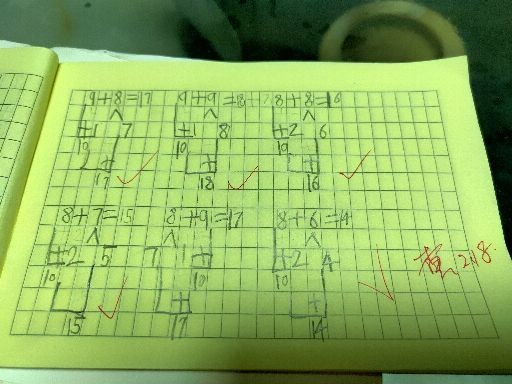 9+8=17 9+9=18 8+8=16
+1 7 +1 8 +2 6
10 10 10
+ + +
17 18 16
8+7=15 8+9=17 8+6=14
+2 5 7 1+ +2 4
10 10 10
+ +
15 17 14
2.18.